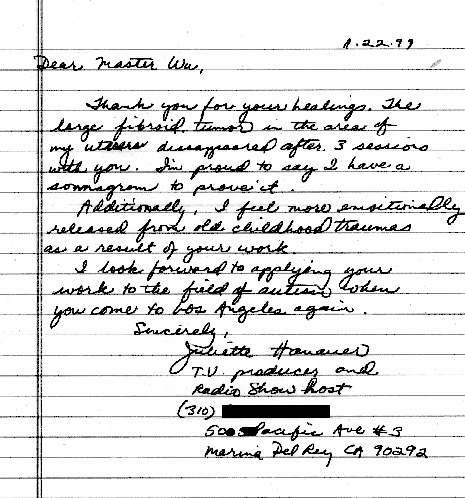 Dear Master Wu,
Thank you for your healings. The
large fibroid tumor in the area of
my uterus disappeared after 3 sessions
with you. I'm proud to say I have a
sonnagram to prove it.
Additionally, I feel more emotionally
released from old childhood traumas
as a result of your work.
I look forward to applying your
work to the field of autism when
you come to Los Angeles again.
Sincerely,
Juliette Hanauer
T.V. producer and
Radio Show host
(310)
Pacific Ave #3
Marina Del Rey CA 90292